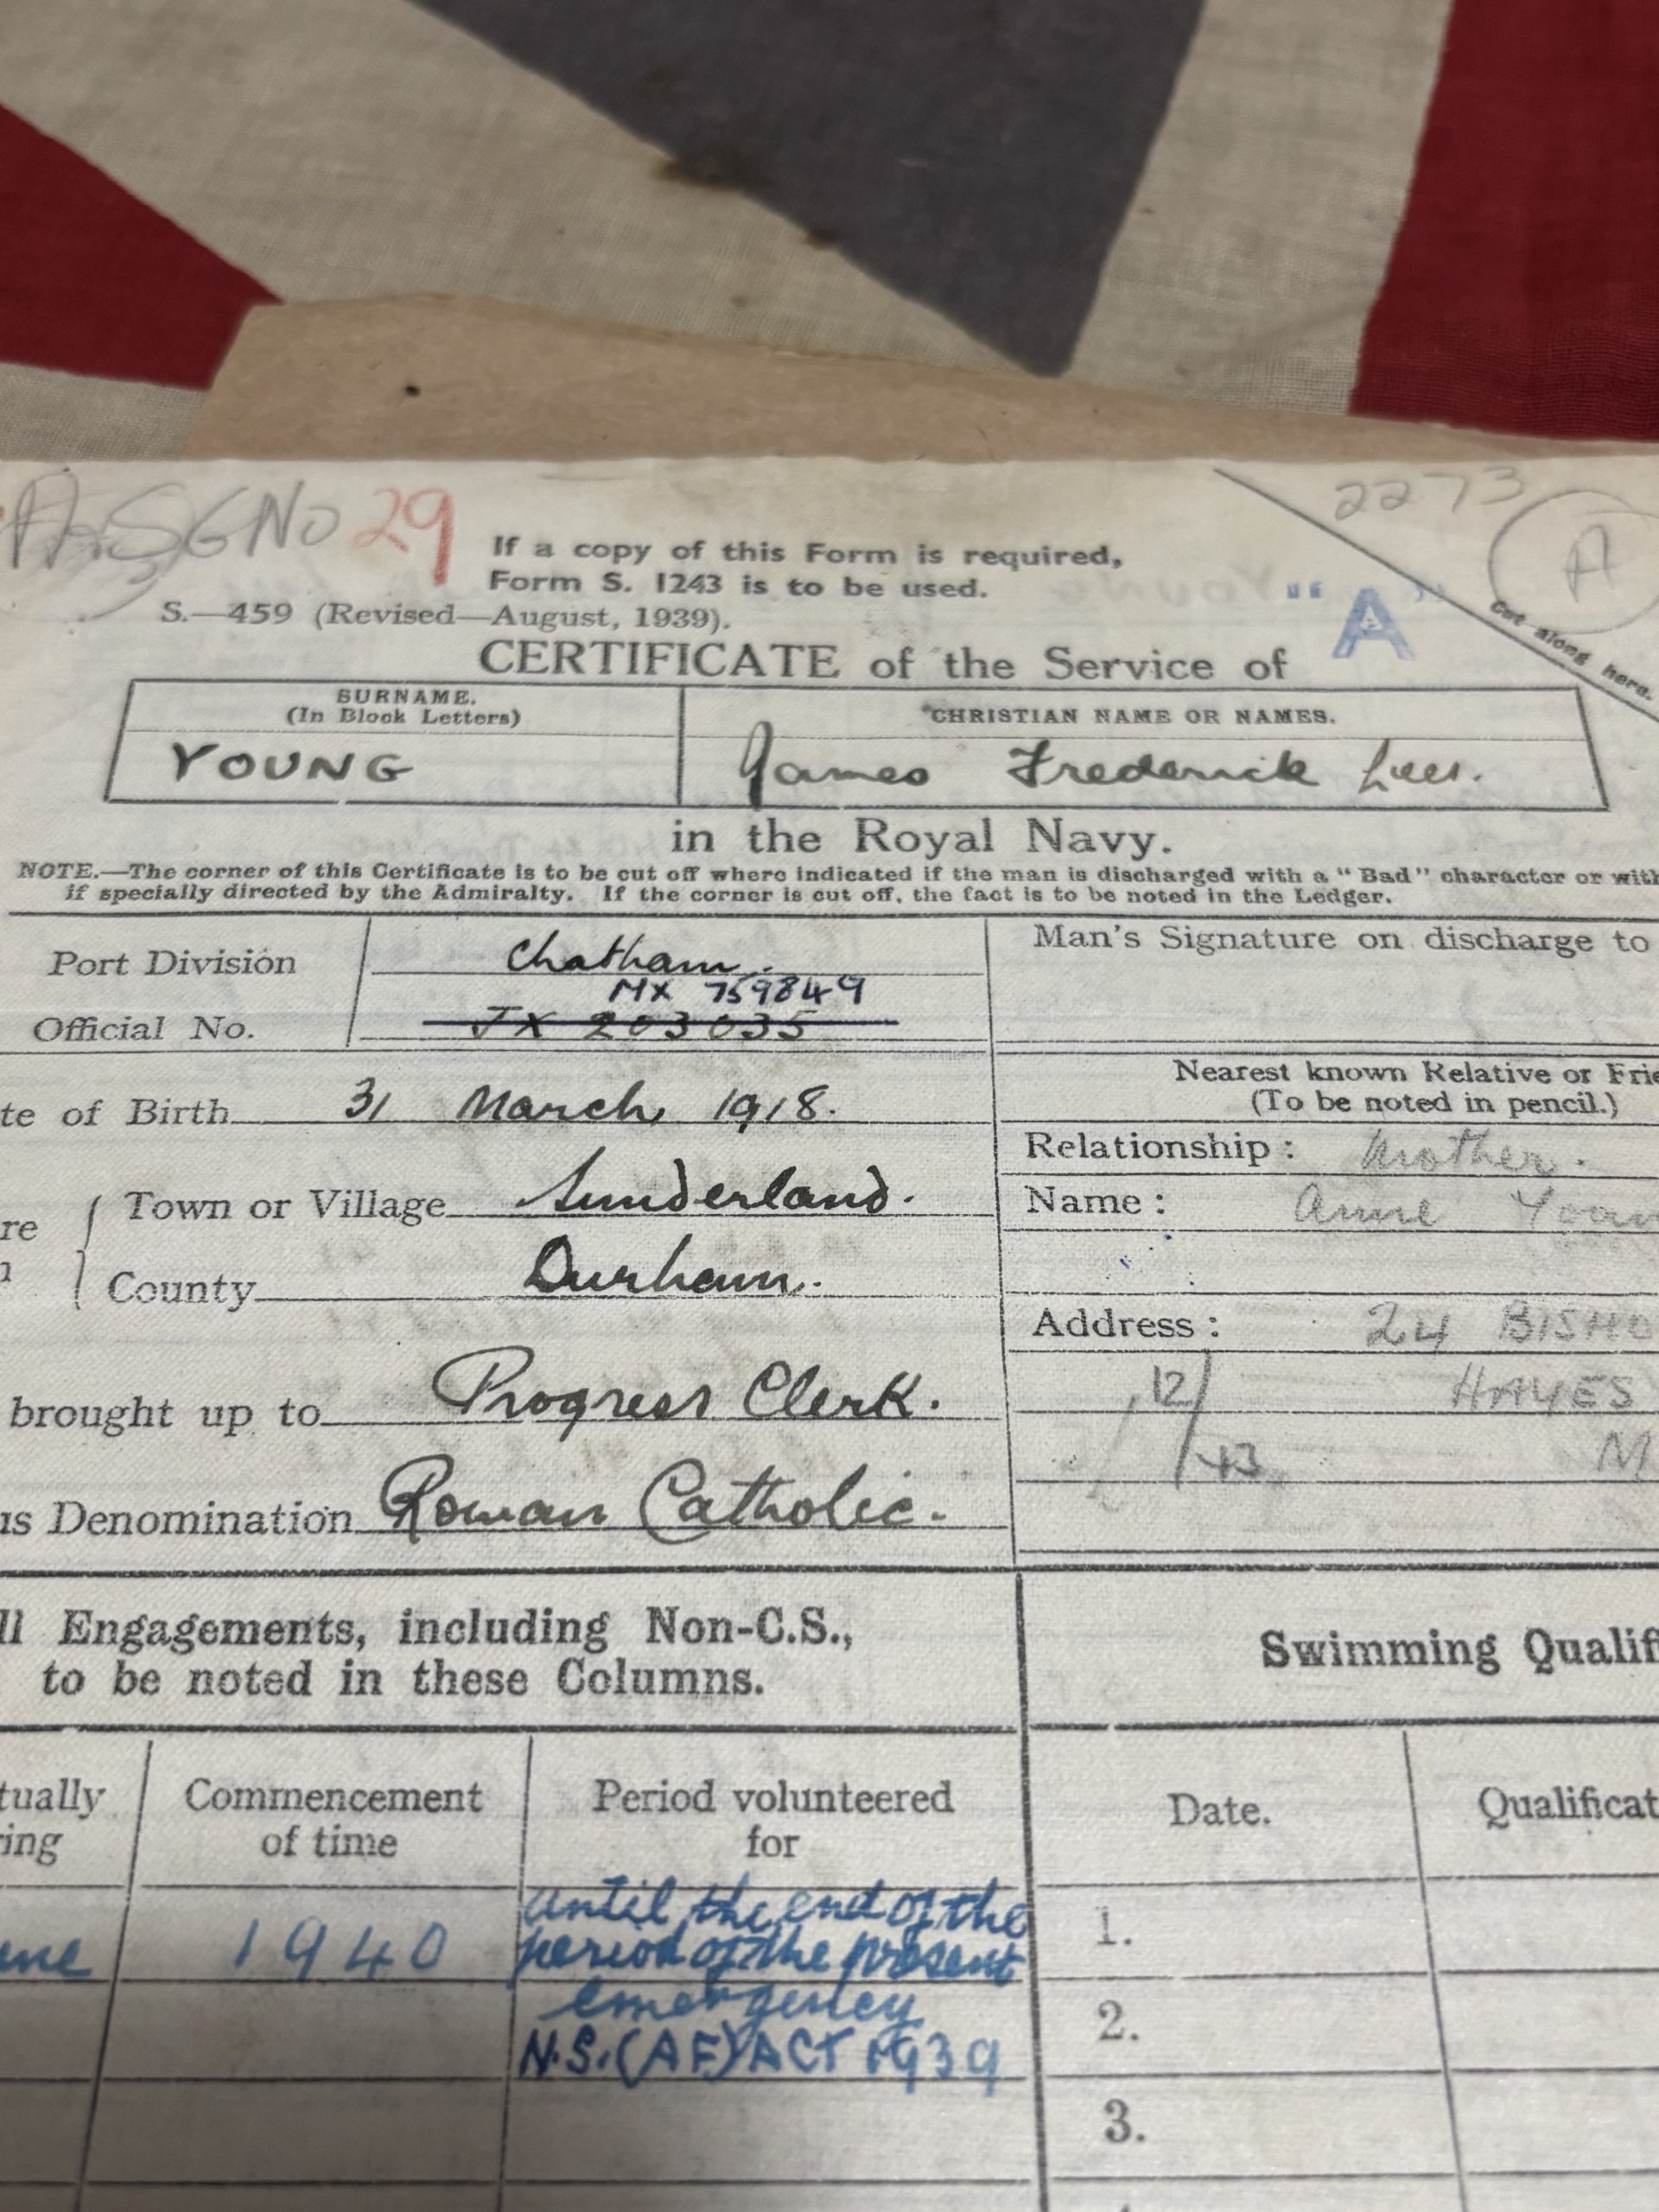 A.S.G No 29
2273
A
If a copy of this Form is required,
Form S. 1243 is to be used.
"A"
Cut along here.
S.—459 (Revised—August, 1939).
CERTIFICATE of the Service of
SURNAME.
(In Block Letters)
CHRISTIAN NAME OR NAMES.
YOUNG
James Frederick Lees.
in the Royal Navy.
NOTE.—The corner of this Certificate is to be cut off where indicated if the man is discharged with a "Bad" character or with
if specially directed by the Admiralty. If the corner is cut off, the fact is to be noted in the Ledger.
Port Division Chatham.
Man's Signature on discharge to
MX 759849
Official No. JX 203035
Nearest known Relative or Frie
(To be noted in pencil.)
te of Birth 31 March, 1918.
Relationship: Mother.
re
Town or Village Sunderland.
Name: Anne
n
County Durham.
Address: 24 BISHO
12/43
HAYES
M
brought up to Progress Clerk.
us Denomination Roman Catholic.
ll Engagements, including Non-C.S.,
to be noted in these Columns.
Swimming Qualif
tually
ring
Commencement
of time
Period volunteered
for
Date.
Qualificat
une
1940
until the end of the
period of the present
emergency
N.S.(AF) ACT 1939
1.
2.
3.